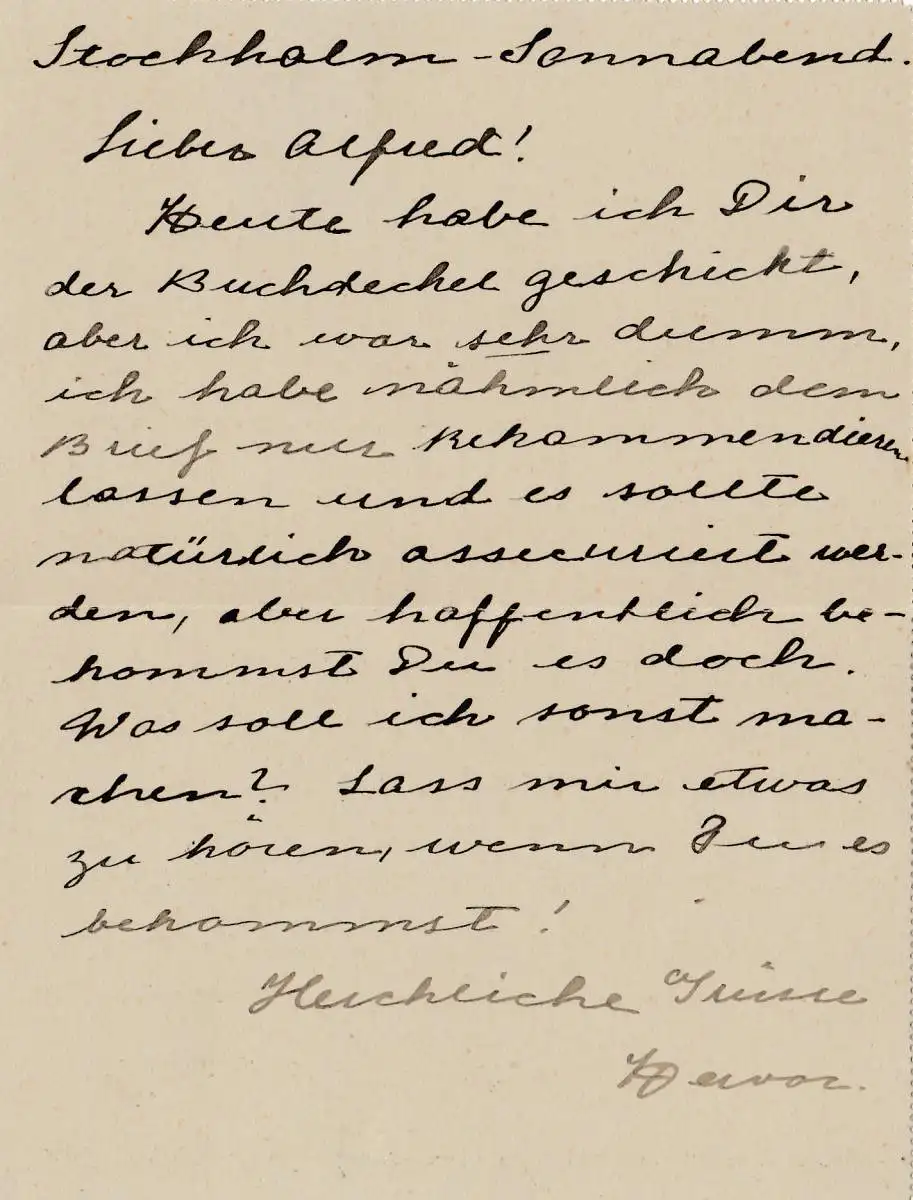 Stockholm - Sonnabend.
Lieber Alfred!
Heute habe ich Dir
der Buchdeckel geschickt,
aber ich war sehr dumm,
ich habe nähmlich dem
Brief nur Rekommendieren
lassen und es sollte
natürlich assecuriert wer-
den, aber hoffentlich be-
kommst Du es doch.
Was soll ich sonst ma-
chen? Lass mir etwas
zu hören, wenn Du es
bekommst!
Herchliche Grüsse
Hervor.